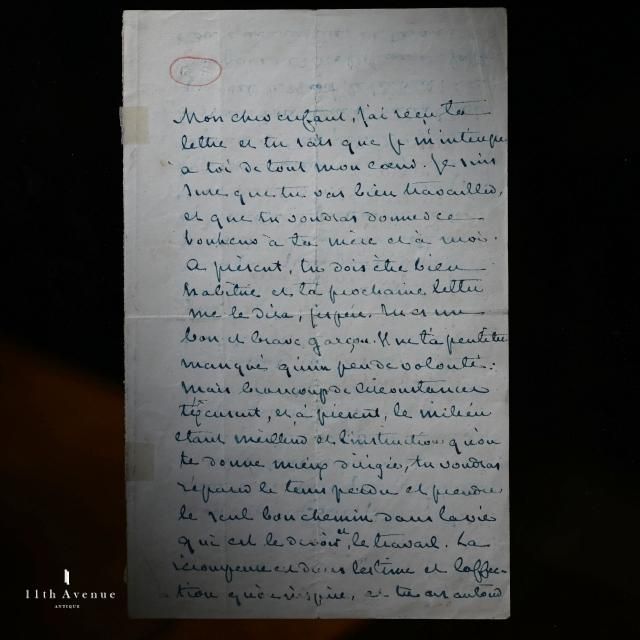 Mon cher enfant, j'ai reçu ta
lettre et tu sais que je m'intéresse
à toi de tout mon cœur. Je suis
sûre que tu vas bien travailler,
et que tu voudras donner ce
bonheur à ta mère et à moi.
A présent, tu dois être bien
habitué et ta prochaine lettre
me le dira, j'espère. Tu es un
bon et brave garçon. Il ne t'a peut être
manqué qu'un peu de volonté.
Mais beaucoup de circonstances
t'excusent, et à présent, le milieu
étant meilleur et l'instruction qu'on
te donne mieux dirigée, tu voudras
réparer le tems perdu et prendre
le seul bon chemin dans la vie
qui est le devoir et le travail. La
récompense est dans l'estime et l'affec-
tion qu'on inspire, et tu as autour
11th Avenue
ANTIQUE